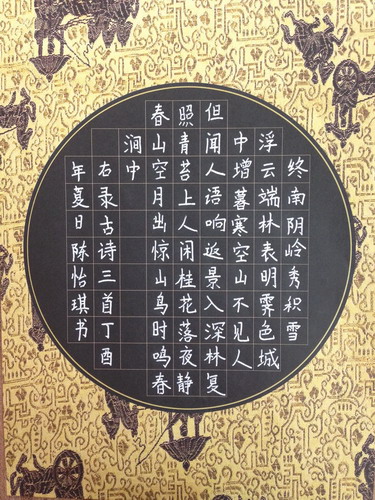 终南阴岭秀积雪
浮云端林表明霁色城
中增暮寒空山不见人
但闻人语响返景入深林复
照青苔上人闲桂花落夜静
春山空月出惊山鸟时鸣春
涧中
右录古诗三首丁酉
年夏日陈怡琪书